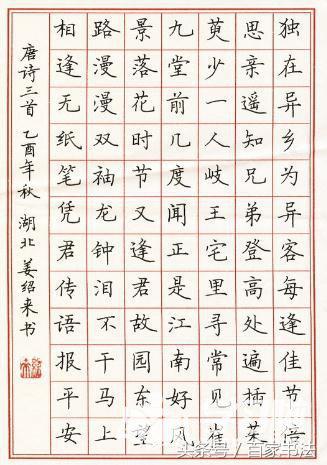 独在异乡为异客每逢佳节倍
思亲遥知兄弟登高处遍插茱
萸少一人岐王宅里寻常见崔
九堂前几度闻正是江南好风
景落花时节又逢君故园东望
路漫漫双袖龙钟泪不干马上
相逢无纸笔凭君传语报平安
唐诗三首 乙酉年秋 湖北 姜绍来书
头条号 / 百家书法